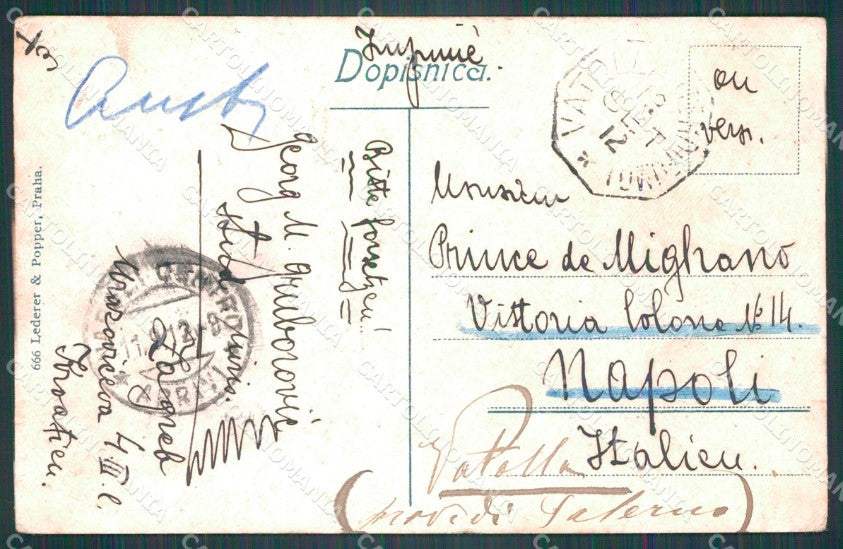 Imprimé
Dopisnica.
ou
vers.
Aust
666 Lederer & Popper, Praha.
Bitte forsetzen!
Georg M. Gruborović
stud. iuris.
Zagreb
Mrazovićeva 4 III. l.
Kroatien.
Monsieur
Prince de Mighano
Vittoria Colona № 14.
Napoli
Italien.
Vatolla
(prov. di Salerno)
CARTOLINOMANIA